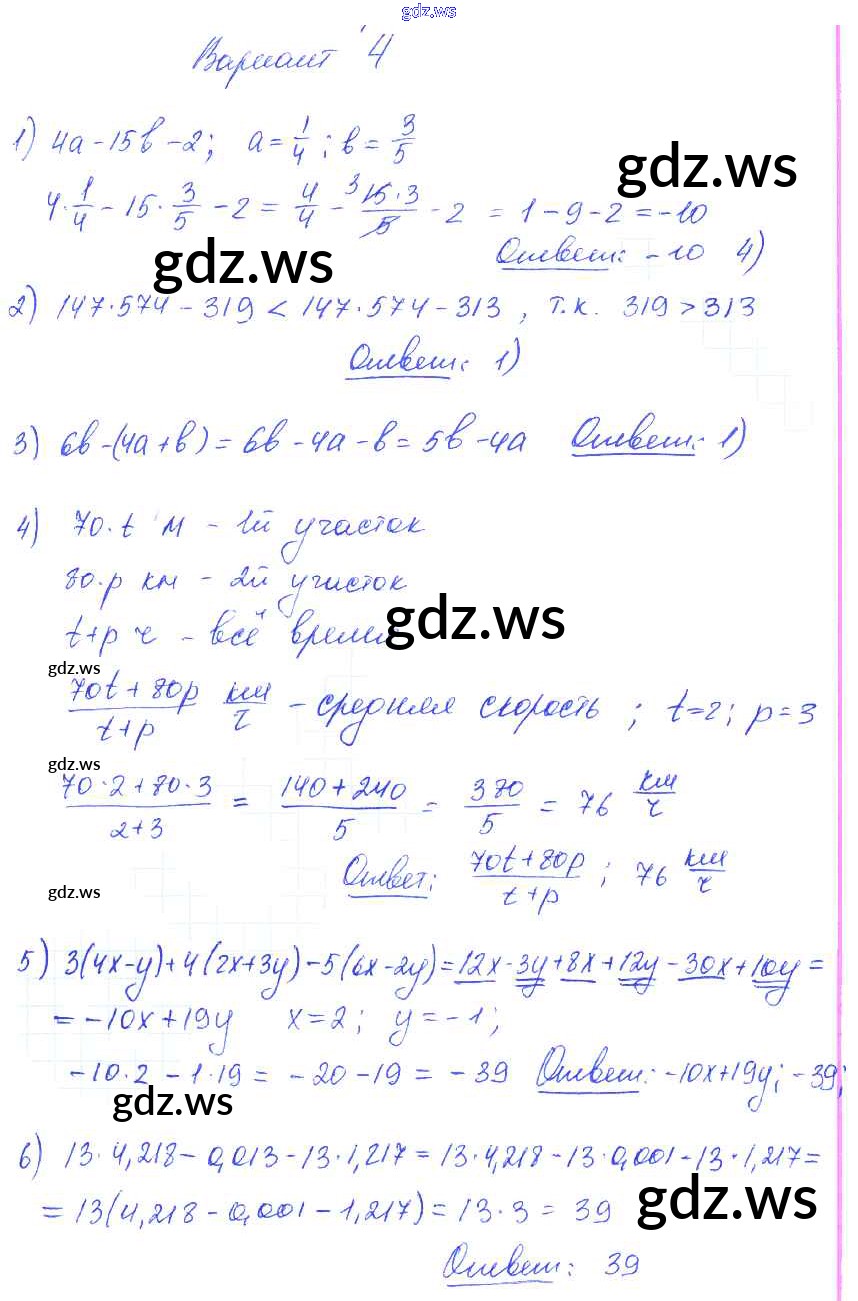 gdz.ws
Вариант 4
1) 4a - 15b - 2; a = 1/4; b = 3/5
gdz.ws
4·1/4 - 15·3/5 - 2 = 4/4 - 3 15·3/5 - 2 = 1 - 9 - 2 = -10
Ответ: -10 4)
gdz.ws
2) 147·574 - 319 < 147·574 - 313, т.к. 319 > 313
Ответ: 1)
3) 6b - (4a + b) = 6b - 4a - b = 5b - 4a Ответ: 1)
4) 70·t м - 1й участок
80·p км - 2й участок
gdz.ws
t+p ч - всё время
gdz.ws
(70t + 80p)/(t+p) км/ч - средняя скорость; t=2; p=3
gdz.ws
(70·2 + 80·3)/(2+3) = (140 + 240)/5 = 380/5 = 76 км/ч
Ответ: (70t + 80p)/(t+p); 76 км/ч
gdz.ws
5) 3(4x-y) + 4(2x+3y) - 5(6x-2y) = 12x - 3y + 8x + 12y - 30x + 10y =
= -10x + 19y x = 2; y = -1;
-10·2 - 1·19 = -20 - 19 = -39 Ответ: -10x+19y; -39;
gdz.ws
6) 13·4,218 - 0,013 - 13·1,217 = 13·4,218 - 13·0,001 - 13·1,217 =
= 13(4,218 - 0,001 - 1,217) = 13·3 = 39
gdz.ws
Ответ: 39